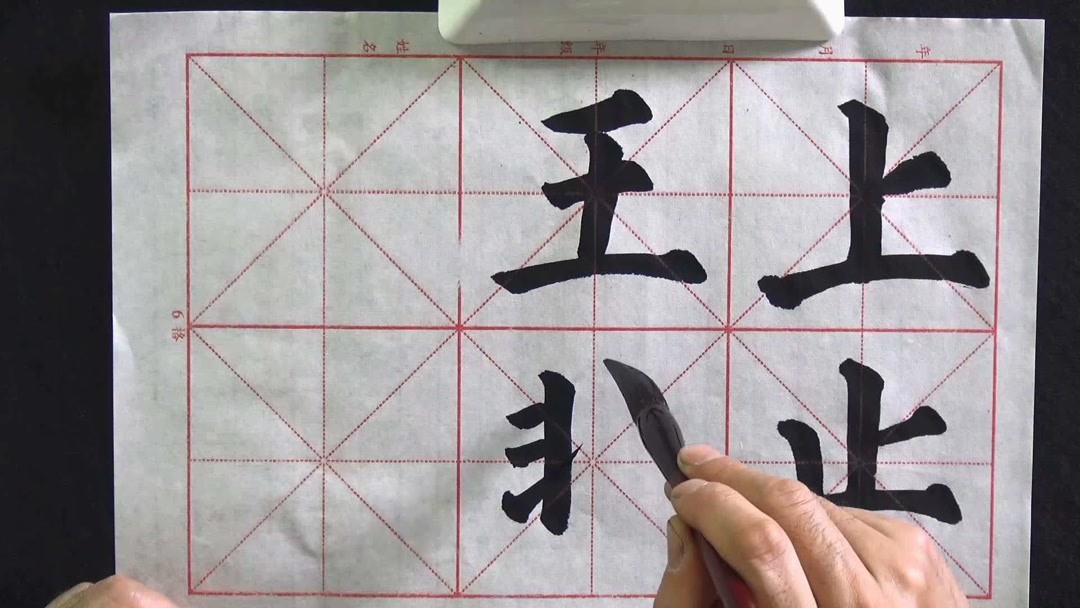 年 月 日 年级 姓名
上止
王
6格